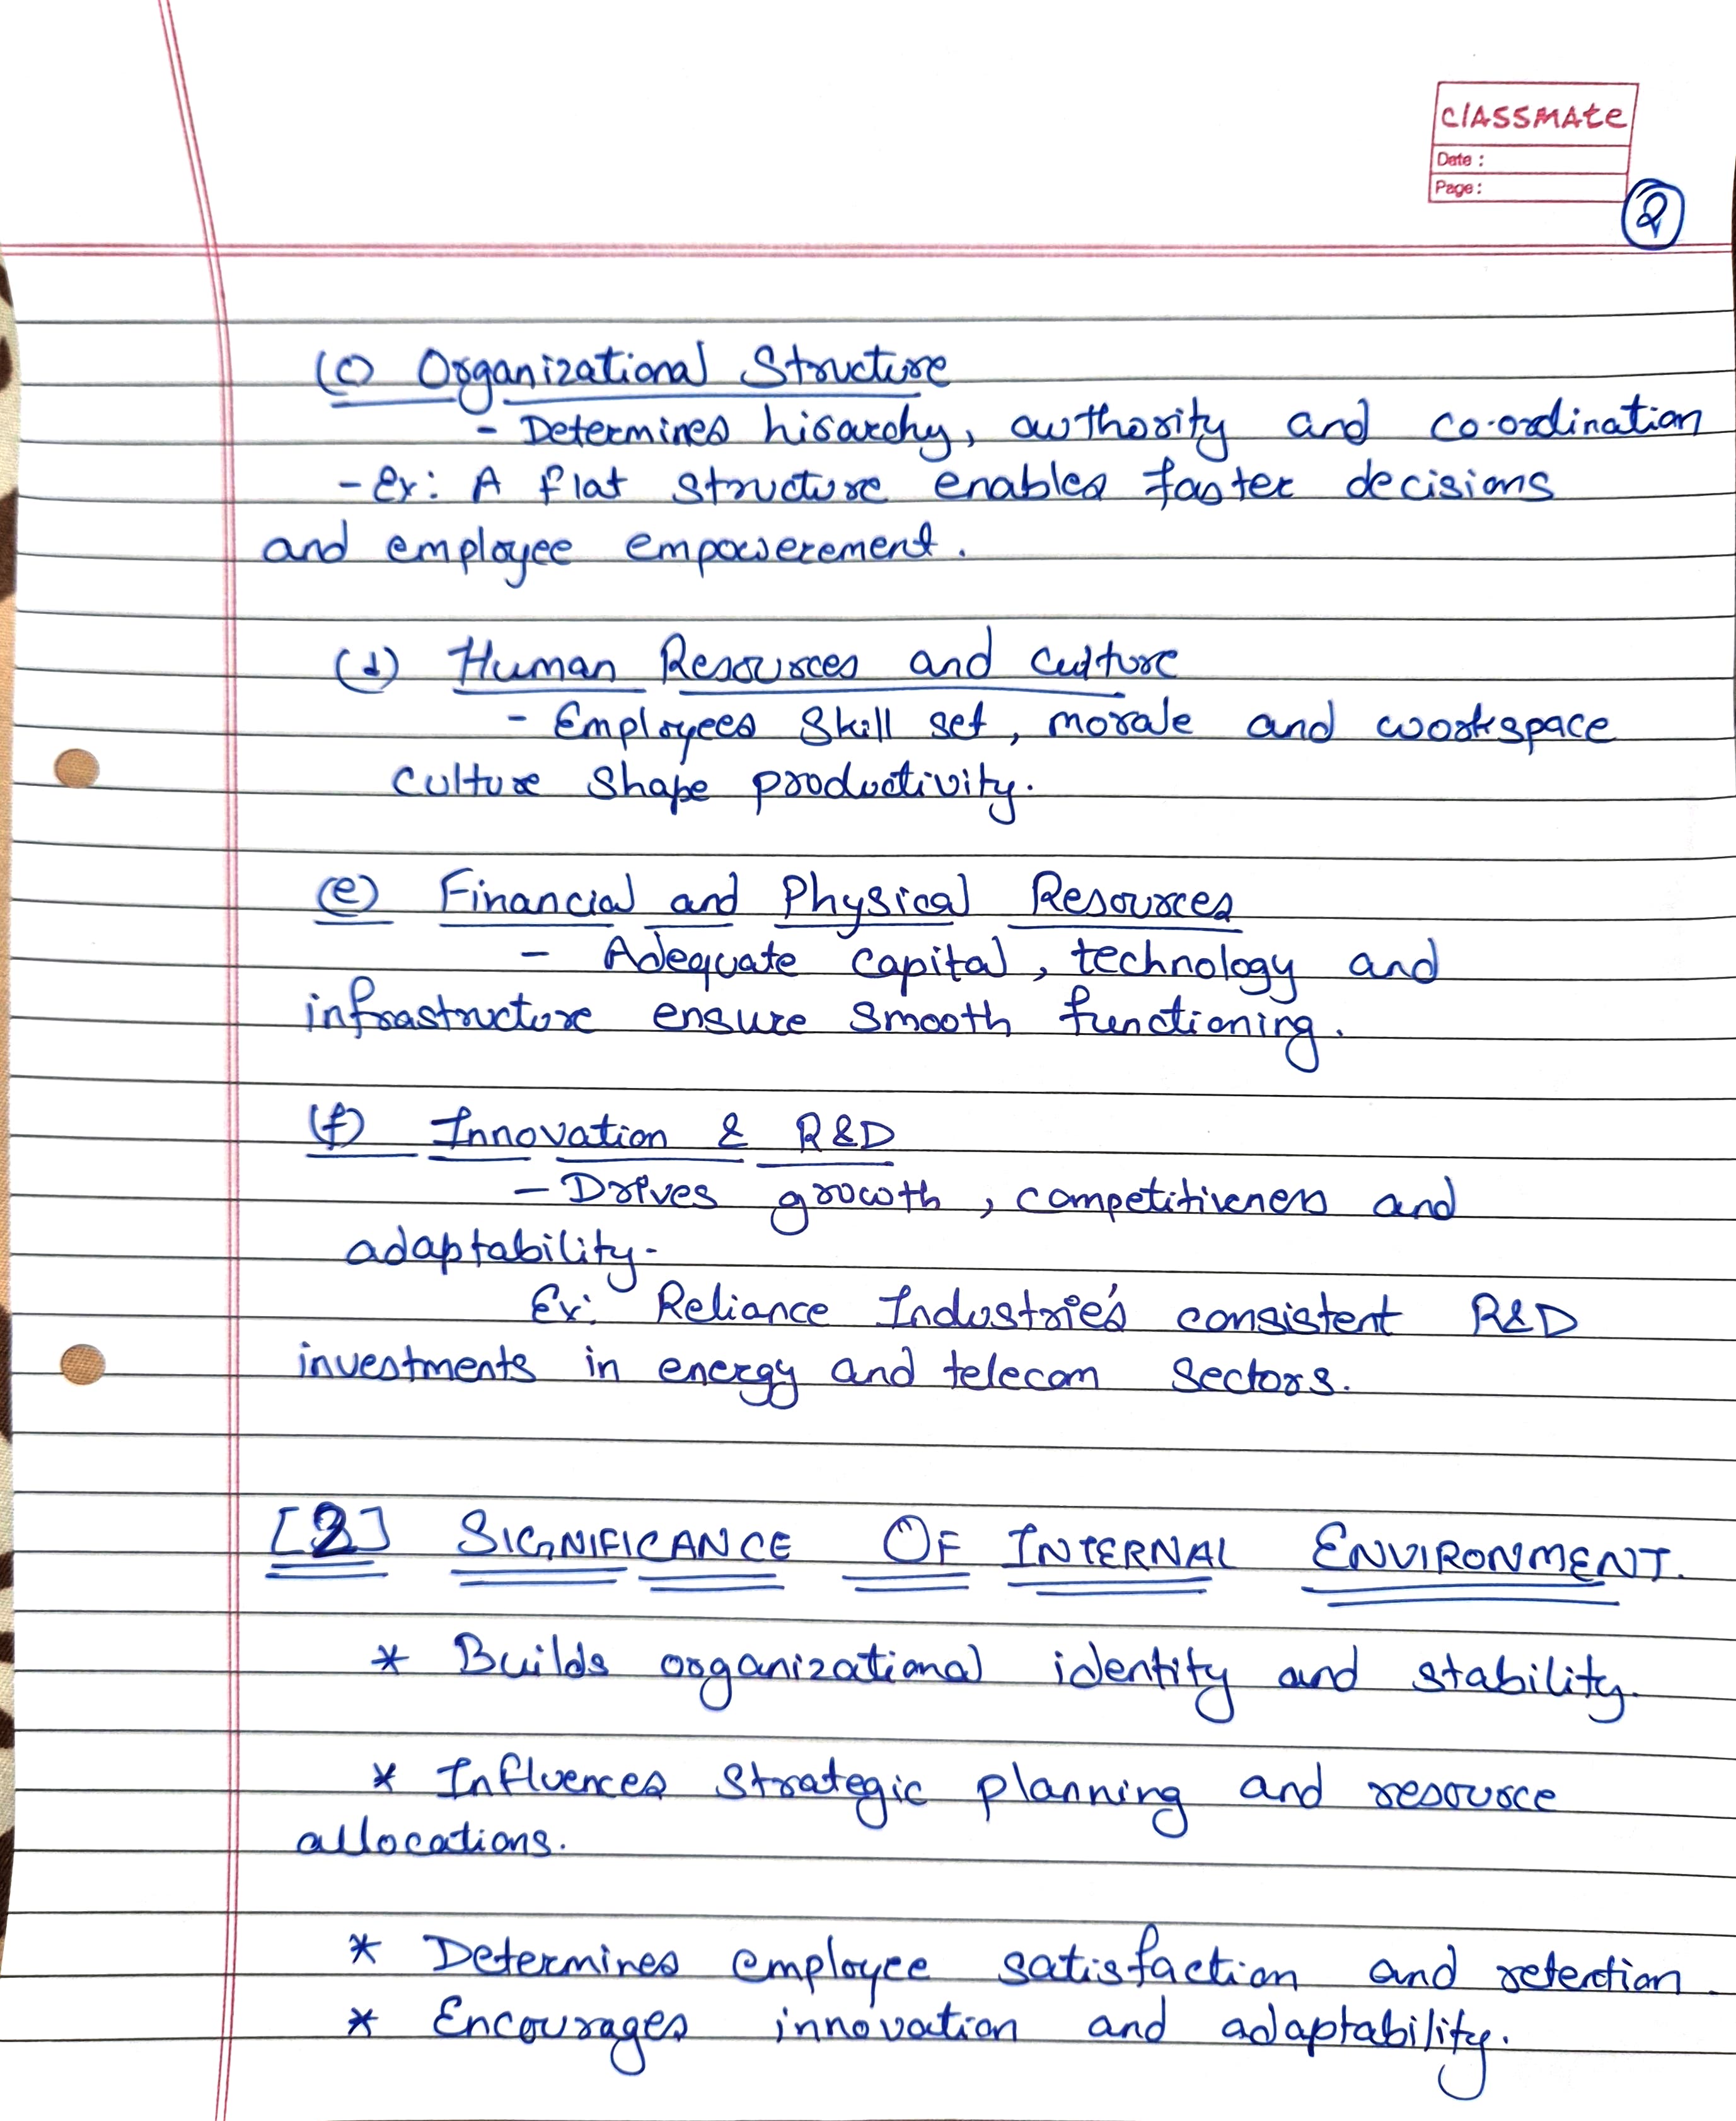 classmate
Date :
Page :
2
(c) Organizational Structure
- Determines hierarchy, authority and co-ordination
- Ex: A flat structure enables faster decisions
and employee empowerement.
(d) Human Resources and Culture
- Employees Skill set, morale and workspace
culture shape productivity.
(e) Financial and Physical Resources
- Adequate capital, technology and
infrastructure ensure smooth functioning.
(f) Innovation & R&D
- Drives growth, competitiveness and
adaptability.
Ex: Reliance Industrie's consistent R&D
investments in energy and telecom sectors.
[2] SIGNIFICANCE OF INTERNAL ENVIRONMENT.
* Builds organizational identity and stability.
* Influences strategic planning and resource
allocations.
* Determines employee satisfaction and retention.
* Encourages innovation and adaptability.